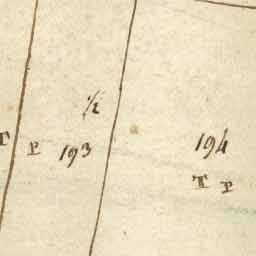 1/2
T P 193
194
T P